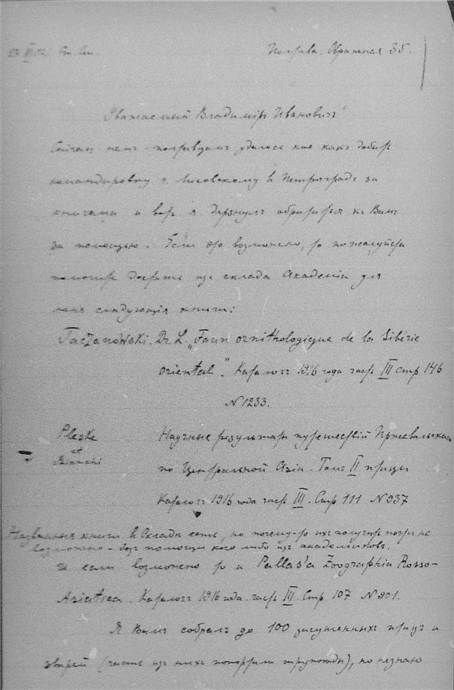 Полтава. Овражная 35.
Уважаемый Владимиръ Ивановичъ!
удалось кое какъ добыть
командировку въ Петроградъ за
книгами и вотъ я дерзнулъ обратиться къ Вамъ
за помощью. Если это возможно, то пожалуйста
помогите достать изъ склада Академіи для
меня слѣдующія книги:
Taczanowski. Dr. L. „Faun ornithologique de la Sibérie
oriental". Каталогъ 1916 года часть III стр 146
N 1233.
Pleske
et
Bianchi
Научные результаты путешествій Пржевальскаго
по Центральной Азіи. Томъ II птицы
Каталогъ 1916 года часть III. Стр 111 N 937
Названныя книги въ складѣ есть, но почему-то ихъ получить почти не
возможно - безъ помощи кого либо изъ академиковъ.
и если возможно то и Pallas'a Zoographia Rosso-
Asiatica. Каталогъ 1916 года. часть III. Стр 107 N 801.
Я Вамъ собралъ до 100 засушенныхъ птицъ и
звѣрей (часть изъ нихъ попортили), но не знаю